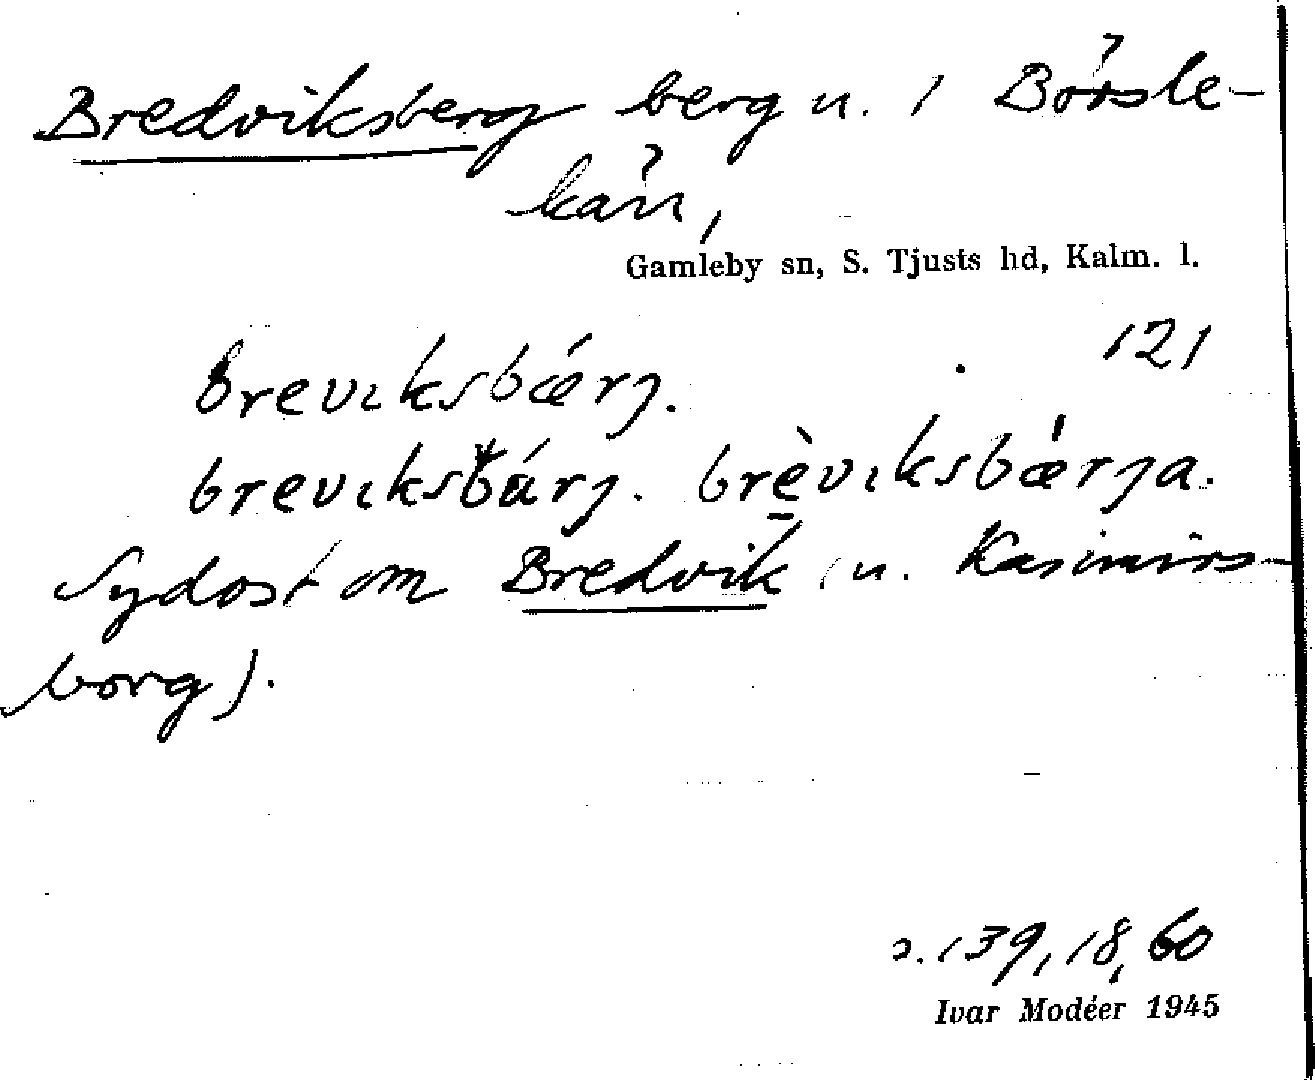 Bredviksberg berg u. / Börsle-
kärr,
Gamleby sn, S. Tjusts hd, Kalm. l.
121
brevıksbǽrj.
brevıksbárj. brèvıksbærja.
Sydost om Bredvik (u. Kasimirs-
borg).
2.139,18,60
Ivar Modéer 1945